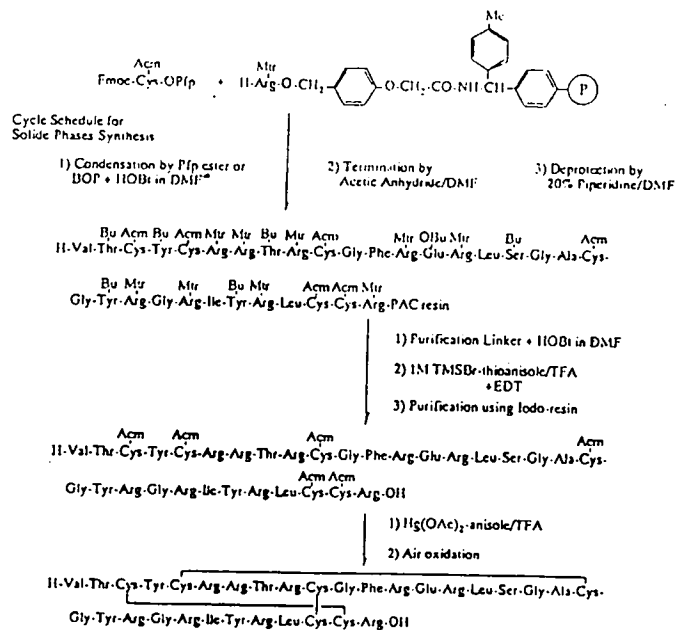 Me
Acm Mtr
Fmoc-Cys-OPfp + H-Arg-O-CH2 O-CH2-CO-NH-CH P
Cycle Schedule for
Solide Phases Synthesis
1) Condensation by Pfp ester or BOP + HOBt in DMF*
2) Termination by Acetic Anhydride/DMF
3) Deprotection by 20% Piperidine/DMF
Bu Acm Bu Acm Mtr Mtr Bu Mtr Acm Mtr OBu Mtr Bu Acm
H-Val-Thr-Cys-Tyr-Cys-Arg-Arg-Thr-Arg-Cys-Gly-Phe-Arg-Glu-Arg-Leu-Ser-Gly-Ala-Cys-
Bu Mtr Mtr Bu Mtr Acm Acm Mtr
Gly-Tyr-Arg-Gly-Arg-Ile-Tyr-Arg-Leu-Cys-Cys-Arg-PAC resin
1) Purification Linker + HOBt in DMF
2) 1M TMSBr-thioanisole/TFA
+EDT
3) Purification using Iodo-resin
Acm Acm Acm Acm
H-Val-Thr-Cys-Tyr-Cys-Arg-Arg-Thr-Arg-Cys-Gly-Phe-Arg-Glu-Arg-Leu-Ser-Gly-Ala-Cys-
Acm Acm
Gly-Tyr-Arg-Gly-Arg-Ile-Tyr-Arg-Leu-Cys-Cys-Arg-OH
1) Hg(OAc)2-anisole/TFA
2) Air oxidation
H-Val-Thr-Cys-Tyr-Cys-Arg-Arg-Thr-Arg-Cys-Gly-Phe-Arg-Glu-Arg-Leu-Ser-Gly-Ala-Cys-
Gly-Tyr-Arg-Gly-Arg-Ile-Tyr-Arg-Leu-Cys-Cys-Arg-OH